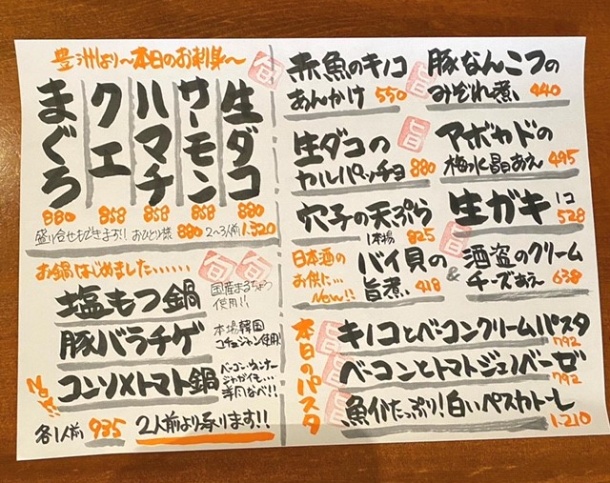 豊洲より〜本日のお刺身〜
旬
生ダコ
880
サーモン
858
ハマチ
858
クエ
858
まぐろ
880
盛り合せもできます!! おひとり様 880 2〜3人前 1.320
お鍋はじめました……
旬 旬
塩もつ鍋
国産まるちょう
使用!!
豚バラチゲ
本場韓国
コチュジャン使用!
New!!
コンソメトマト鍋
ベーコン・ウィンナー
ジャガイモ…
洋風なべ!!
各1人前 935 2人前より承ります!!
赤魚のキノコ
あんかけ 550
旨
豚なんこつの
みぞれ煮 440
生ダコの
カルパッチョ 880
旨
アボカドの
梅水晶あえ 495
穴子の天ぷら
1本揚 825
旨
生ガキ 1コ
528
日本酒の
お供に…
New!!
バイ貝の
旨煮 418
&
酒盗のクリーム
チーズあえ 638
本日のパスタ
キノコとベーコンクリームパスタ
792
ベーコンとトマトジェノベーゼ
792
魚介たっぷり!白いペスカトーレ
1.210